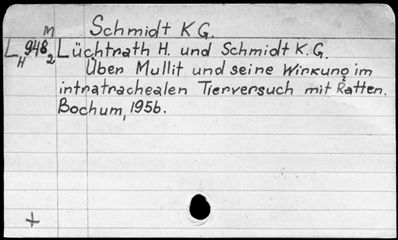 Schmidt K G.
M
L 948 Lüchtrath H. und Schmidt K. G.
H 2
Über Mullit und seine Wirkung im
intratrachealen Tierversuch mit Ratten.
Bochum, 1956.